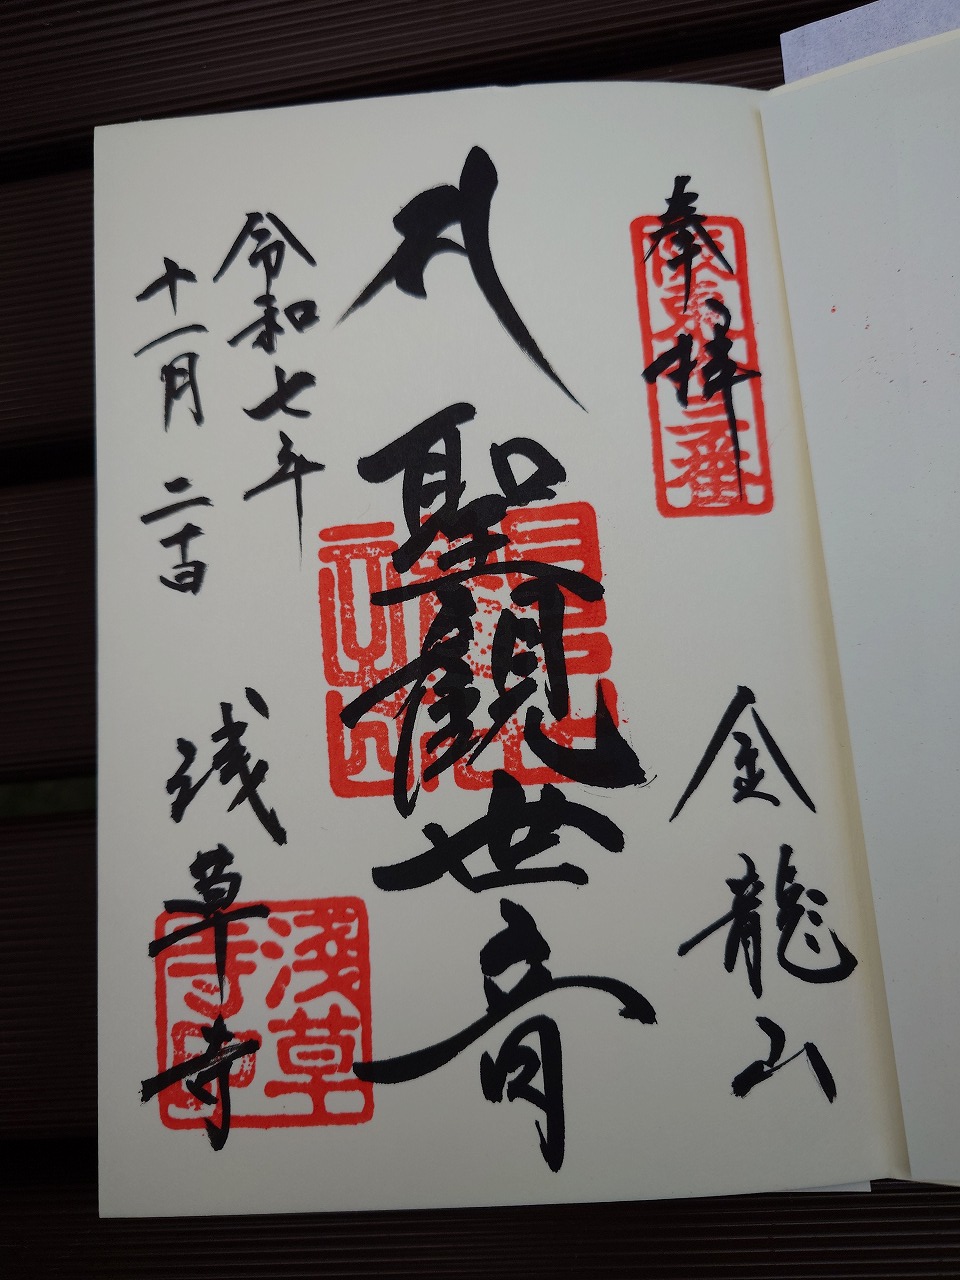 奉拝
坂東十三番
金龍山
聖観世音
令和七年
十一月二十日
浅草寺
浅草寺印